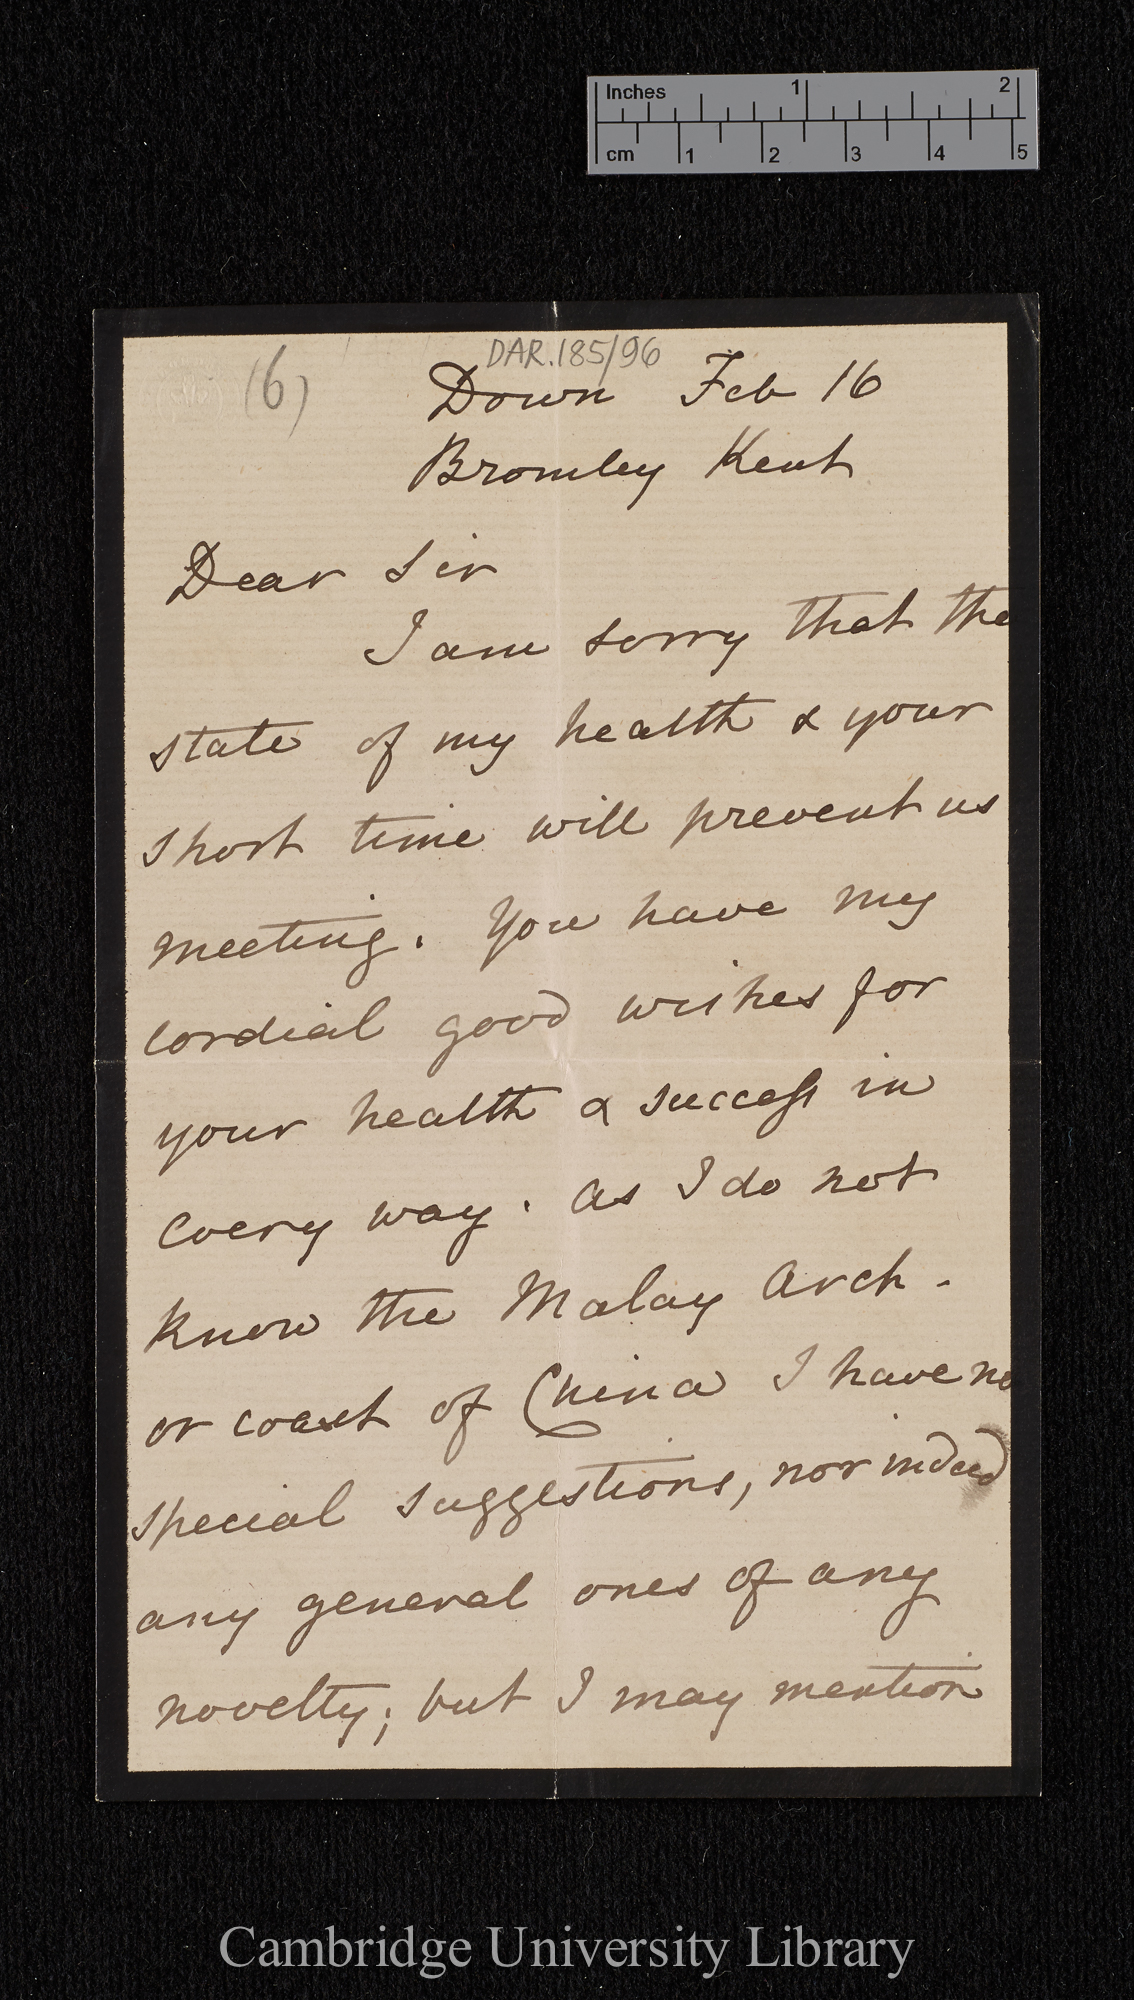 Inches 1 2
cm 1 2 3 4 5
DAR.185/96
(6)
Down Feb 16
Bromley Kent
Dear Sir
I am sorry that the
state of my health & your
short time will prevent us
meeting. You have my
cordial good wishes for
your health & success in
every way. As I do not
know the Malay Arch.
or coast of China I have no
special suggestions, nor indeed
any general ones of any
novelty; but I may mention
Cambridge University Library